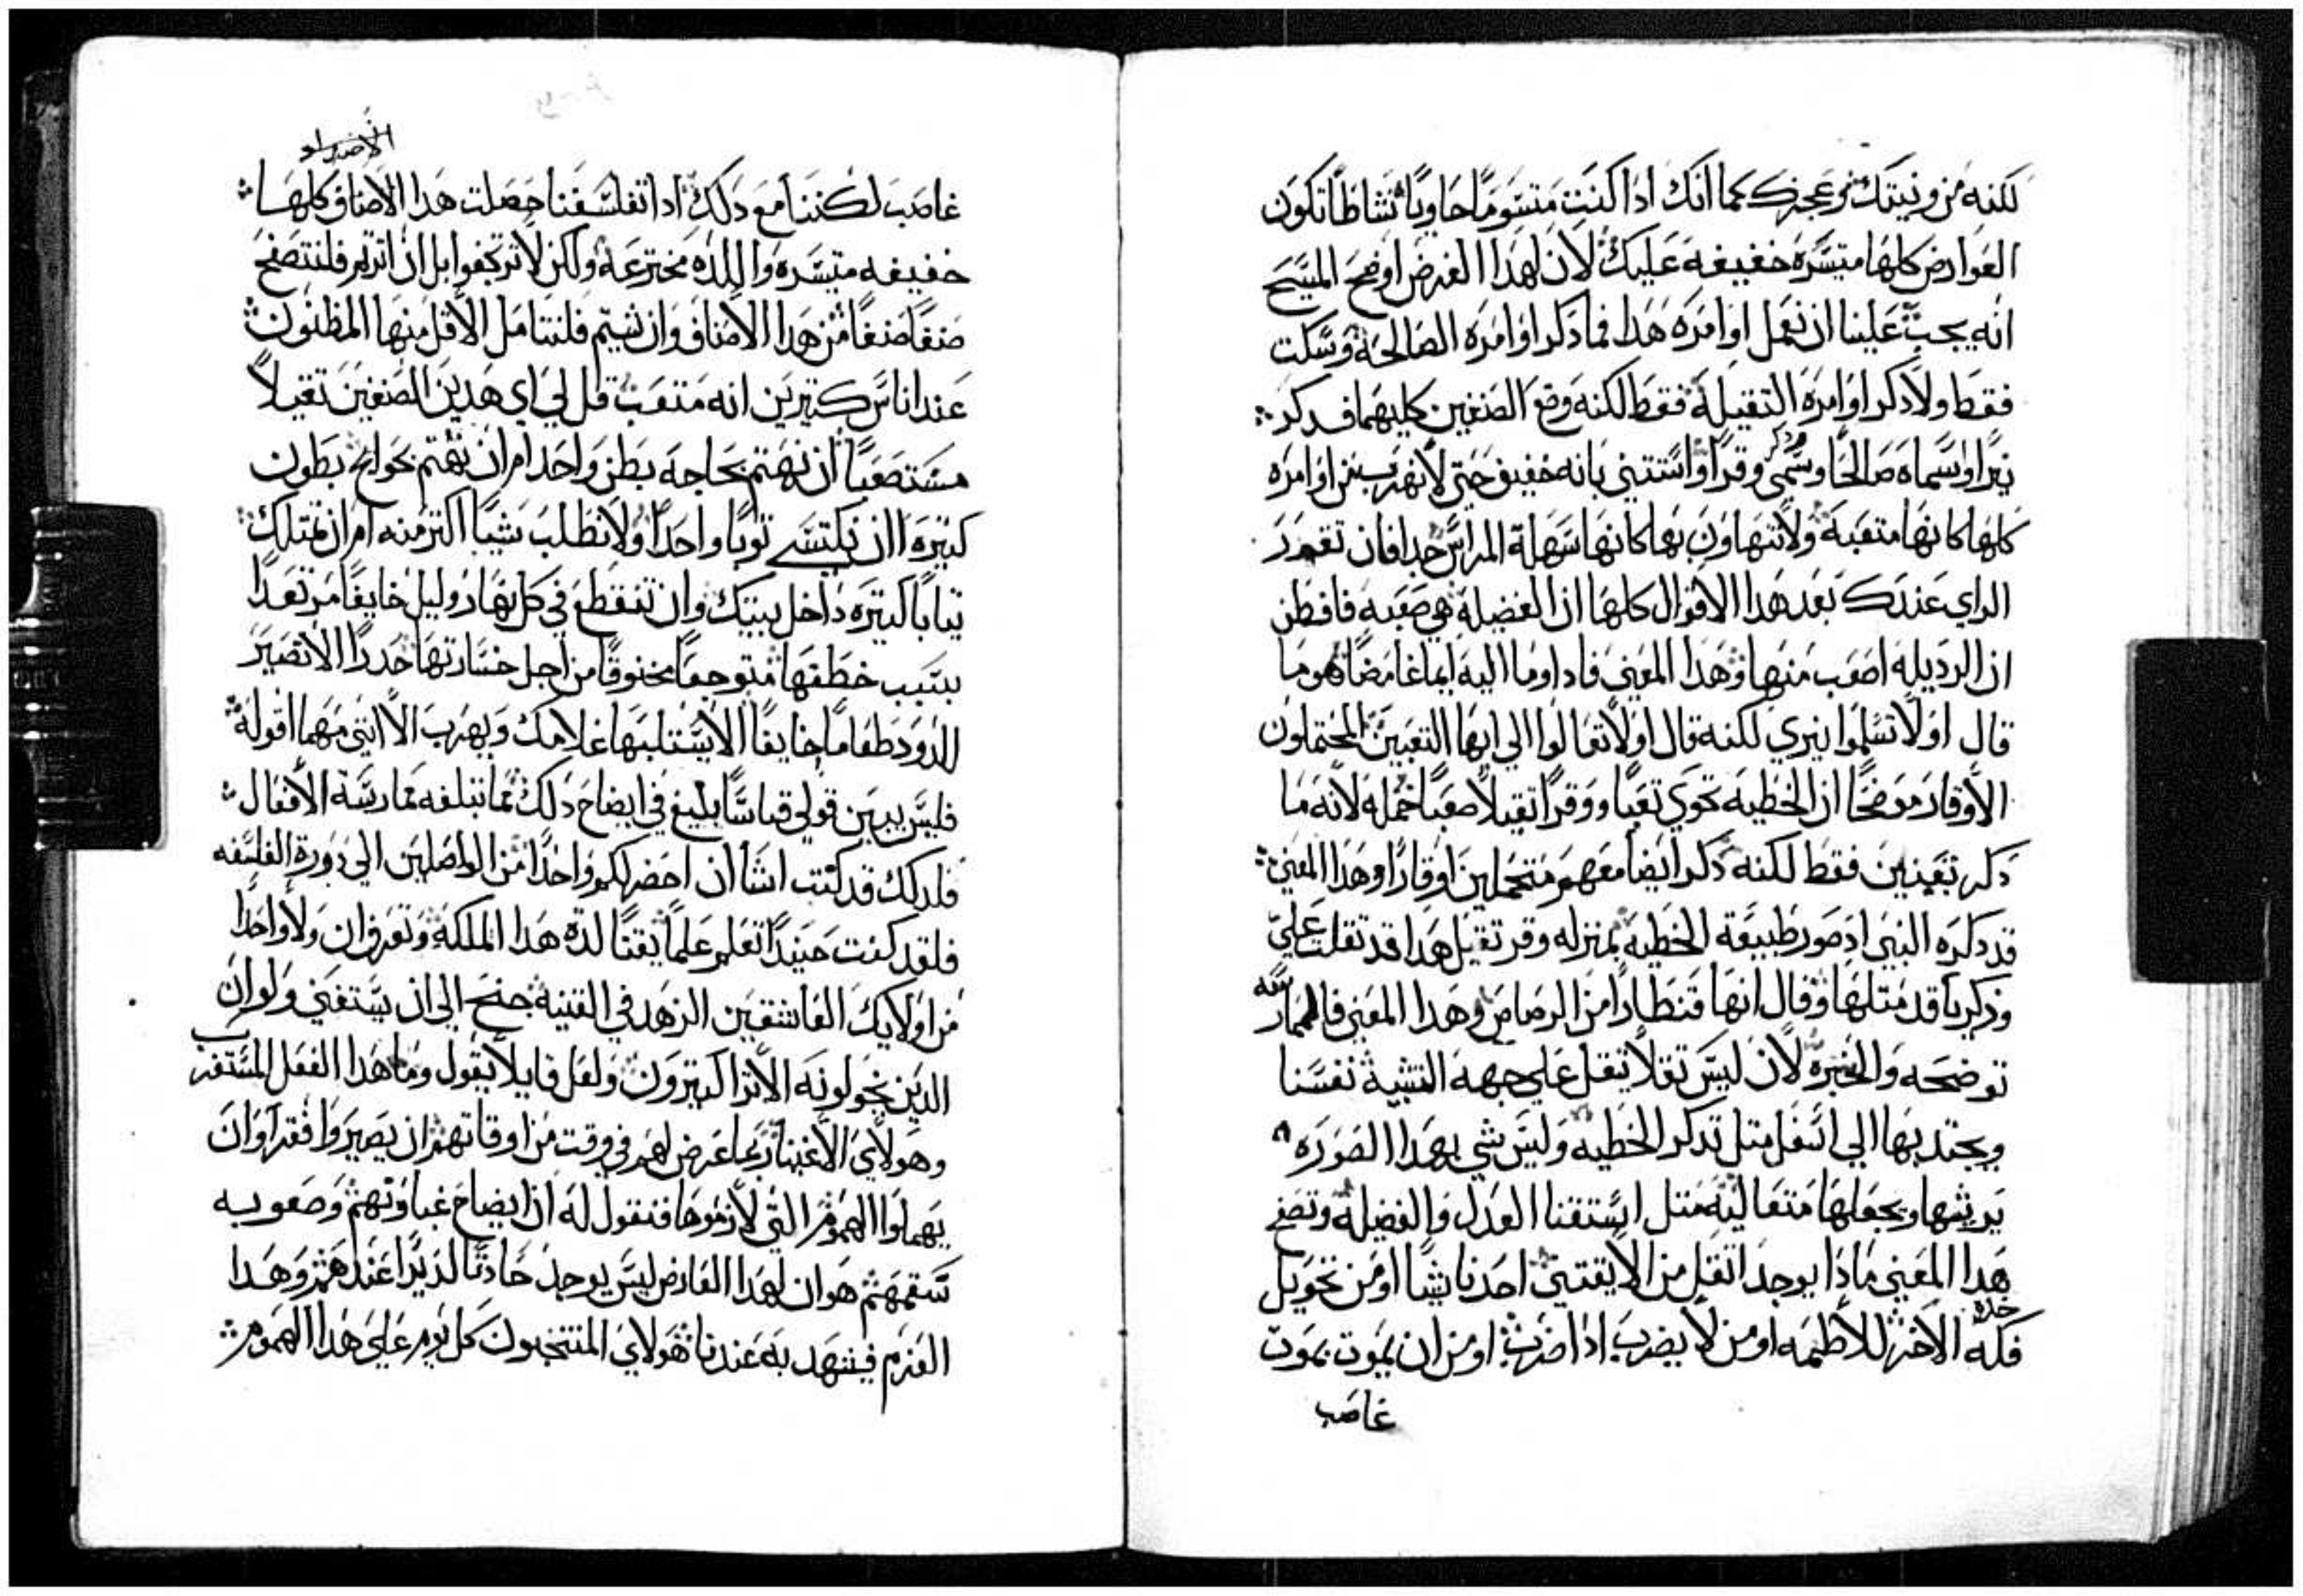 لكنه من ونيتك وعجزك كما انك اذا كنت متسوما حاويا نشاطا تكون
العوارض كلها متيسرة خفيفة عليك لان لهدا الغرض اوضح المسيح
انه يجب علينا ان نعمل اوامره هدا فما دكر اوامره الصالحة وسكت
فقط ولا دكر اوامره التقيلة فقط لكنه وضع الصنفين كليهما فدكر
نيرا وسماه صالحا وسمى وقرا واستتنى بانه خفيف حتى لا نهرب من اوامره
كلها كانها متعبة ولا نتهاون بها كانها سهلة المراس جدا فان تقرر
الراي عندك بعد هدا الاقوال كلها ان الفضيلة هي صعبه فافطن
ان الرديله اصعب منها وهدا المعنى فادا وما اليه ايما غامضا هو ما
قال اولا تسلموا نيري لكنه قال اولا تعالوا الي ايها التعبين المحتملون
الاوقار موضحا ان الخطيه تحوي تعبا ووقرا تقيلا صعبا حمله لانه ما
دكر تعبين فقط لكنه دكر ايضا معهم متحملين اوقارا وهدا المعنى
قد دكره النبي اد صور طبيعة الخطية بمنزله وقر تقيل هدا قد تقلت علي
وزكريا قد متلها وقال انها قنطارا من الرصاص وهدا المعنى فالممارسه
توضحه والخبرة لان ليس تقلا يتقل على جهة التشبية نفسنا
ويجتدبها الي اسفل متل تدكر الخطية وليس شي بهدا الصوره
يريشها ويجعلها متعالية متل ايستقنا العدل والفضيلة وتصفح
هدا المعنى مادا يوجد اتقل من الا يقتني احدنا شيا او من تحويل
خده
فكه الاخر للاطمه او من لا يضرب ادا ضرب او من ان يموت بموت
غاصب
الاصداد
غاصب لكننا مع دلك ادا تفلسفنا حصلت هدا الاصناف كلها
خفيفه متيسره واللده مخترعة ولكن لا ترتجفوا بل ان اترتم فلنتصفح
صنفا صنفا من هدا الاصناف وان شيتم فلنتامل الاقل منها المظنون
عند اناس كتيرين انه متعب قل لي اي هدين الصنفين تقيلا
مستصعبا ان نهتم بحاجه بطن واحد ام ان نهتم بحوايج بطون
كتيره ا ان نكتسي توبا واحدا ولا نطلب شيا اكتر منه ام ان نمتلك
تيابا كتيره داخل بيتك وان تنقطع في كل نهار وليل خايفا مرتعدا
بسبب خطفها متوجعا مخنوقا من اجل خسارتها حدرا الا تصير
للدود طعاما خايفا الا يستلبها غلامك ويهرب الا انني مهما اقوله
فليس يبين قولي قياسا بليغ في ايضاح دلك مما تبلغه ممارسة الافعال
فلدلك قد كنت اشا ان احضر لكم واحدا من الواصلين الي دورة الفلسفه
فلقد كنت حينيدا تعلم علما يقنا لدة هدا الملكة وتعرف ان ولا واحدا
من اولايك العاشقين الزهد في القنية جنح الي ان يستغني ولو ان
الدين يخولونه الاترا كتيرون ولعل قايلا يقول وما هدا الفعل المستغرب
وهولاي الاغنيا ربما عرض لهم في وقت من اوقاتهم ان يصيروا فقرا وان
يهملوا الهموم التي لازموها فنقول له ان ايضاح غباوتهم وصعوبه
سقمهم هو ان لهدا العارض ليس يوجد حادتا لديدا عندهم وهدا
العزم فيشهد به عندنا هولاي المنتحبون كل يوم علي هدا الهموم